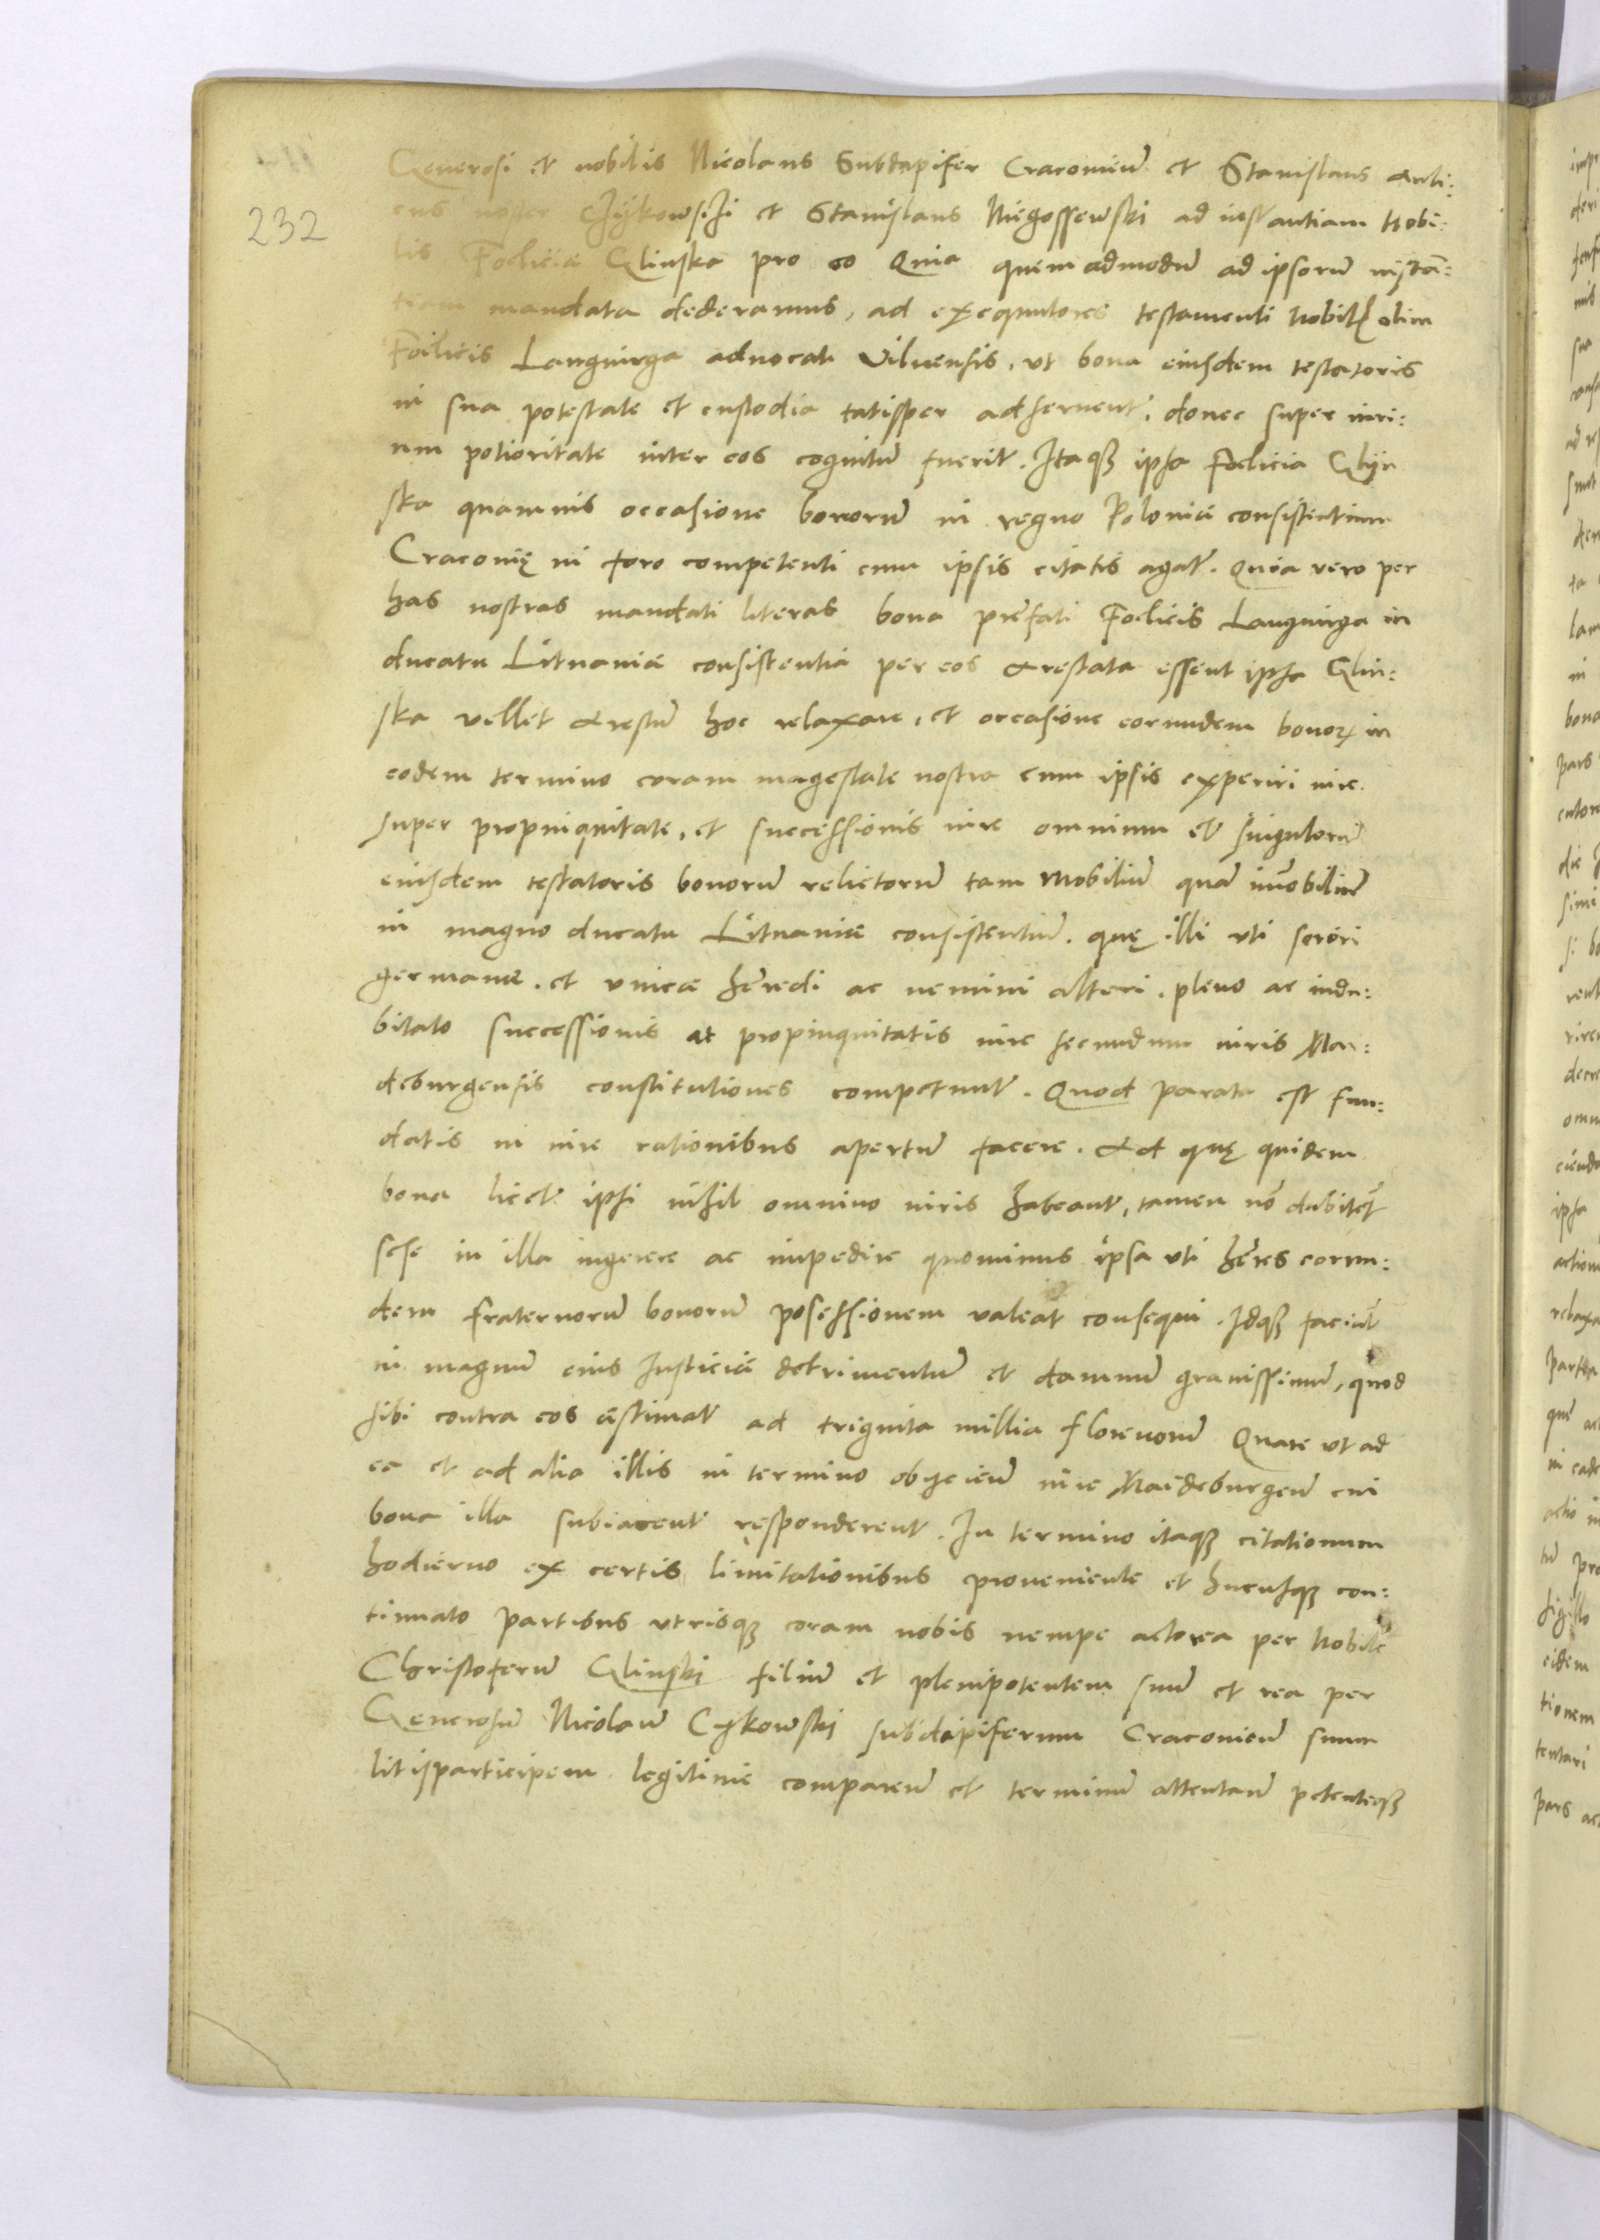 232
Generosi et nobilis Nicolaus Subdapifer Cracovieñ et Stanislaus Auli:
cus noster Czÿkowsiÿ et Stanislaus Niegossewski ad instantiam Nobi:
lis Foeliciæ Glinska pro eo Quia quemadmodū ad ipsorū instā:
tiam mandata dederamus, ad exequutores testamenti Nobilis olim
Foelicis Langurga advocati Vilnensis, ut bona eiusdem testatoris
in sua potestate et custodia tatisper adservent, donec super iuri:
um potioritate inter eos cognitū fuerit. Itaqȝ ipsa Foelicia Glijn
ska quamvis occasione bonorū in regno Poloniæ consistentium
Cracovię in foro competenti cum ipsis citatis agat. Quia vero per
has nostras mandati literas bona prefati Foelicis Langurga in
ducatu Lituaniæ consistentia per eos arestata essent ipsa Glin:
ska vellet arestū hoc relaxare, et occasione eorumdem bonoꝝ in
eodem termino coram magestate nostra cum ipsis experiri iure
super propinquitate, et successionis iure omnium et singulorū
eiusdem testatoris bonorū relictorū tam mobiliū quā im̄obiliū
in magno ducatu Lituaniæ consistentiū. quę illi uti sorori
germanæ. et unicæ hēredi ac nemini alteri. pleno ac indu:
bitato successionis at propinquitatis iure secundum iuris Mai:
deburgensis constitutiones competunt. Quod parata est fun:
datis in iure rationibus apertū facere. Ad quę quidem
bona licet ipsi nihil omnino iuris habeant, tamen nō dubitet
sese in illa ingerere ac impedire quominus ipsa uti hēres eorum:
dem fraternorū bonorū posessionem valeat consequi. Idqȝ faciūt
in magnū eius Iusticiæ detrimentū et damnū gravissimū, quod
sibi contra eos æstimat ad triginta millia florenorū Quare ut ad
ea et ad alia illis in termino obijcieñ iure Maideburgeñ cui
bona illa subiacent responderent. In termino itaqȝ citationum
hodierno ex certis limitationibus proveniente et hucusqȝ con:
tinuato partibus utrisqȝ coram nobis nempe actorea per Nobilē
Christoferum Glinski filium et plenipotentem suū et rea per
Generosū Nicolaū Czÿkowski subdapiferum Cracovieñ suum
litisparticipem legitime compareñ et terminū attentañ petenteqȝ